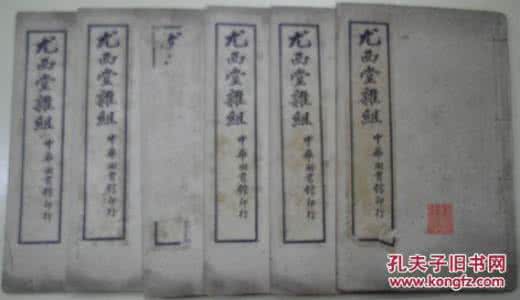 尤西堂雜組
中華圖書館印行
尤西堂雜組
中華圖書館印行
尤西堂雜組
中華圖書館印行
尤西堂雜組
中華圖書館印行
尤西堂雜組
中華圖書館印行
孔夫子旧书网
KONGFZ.COM